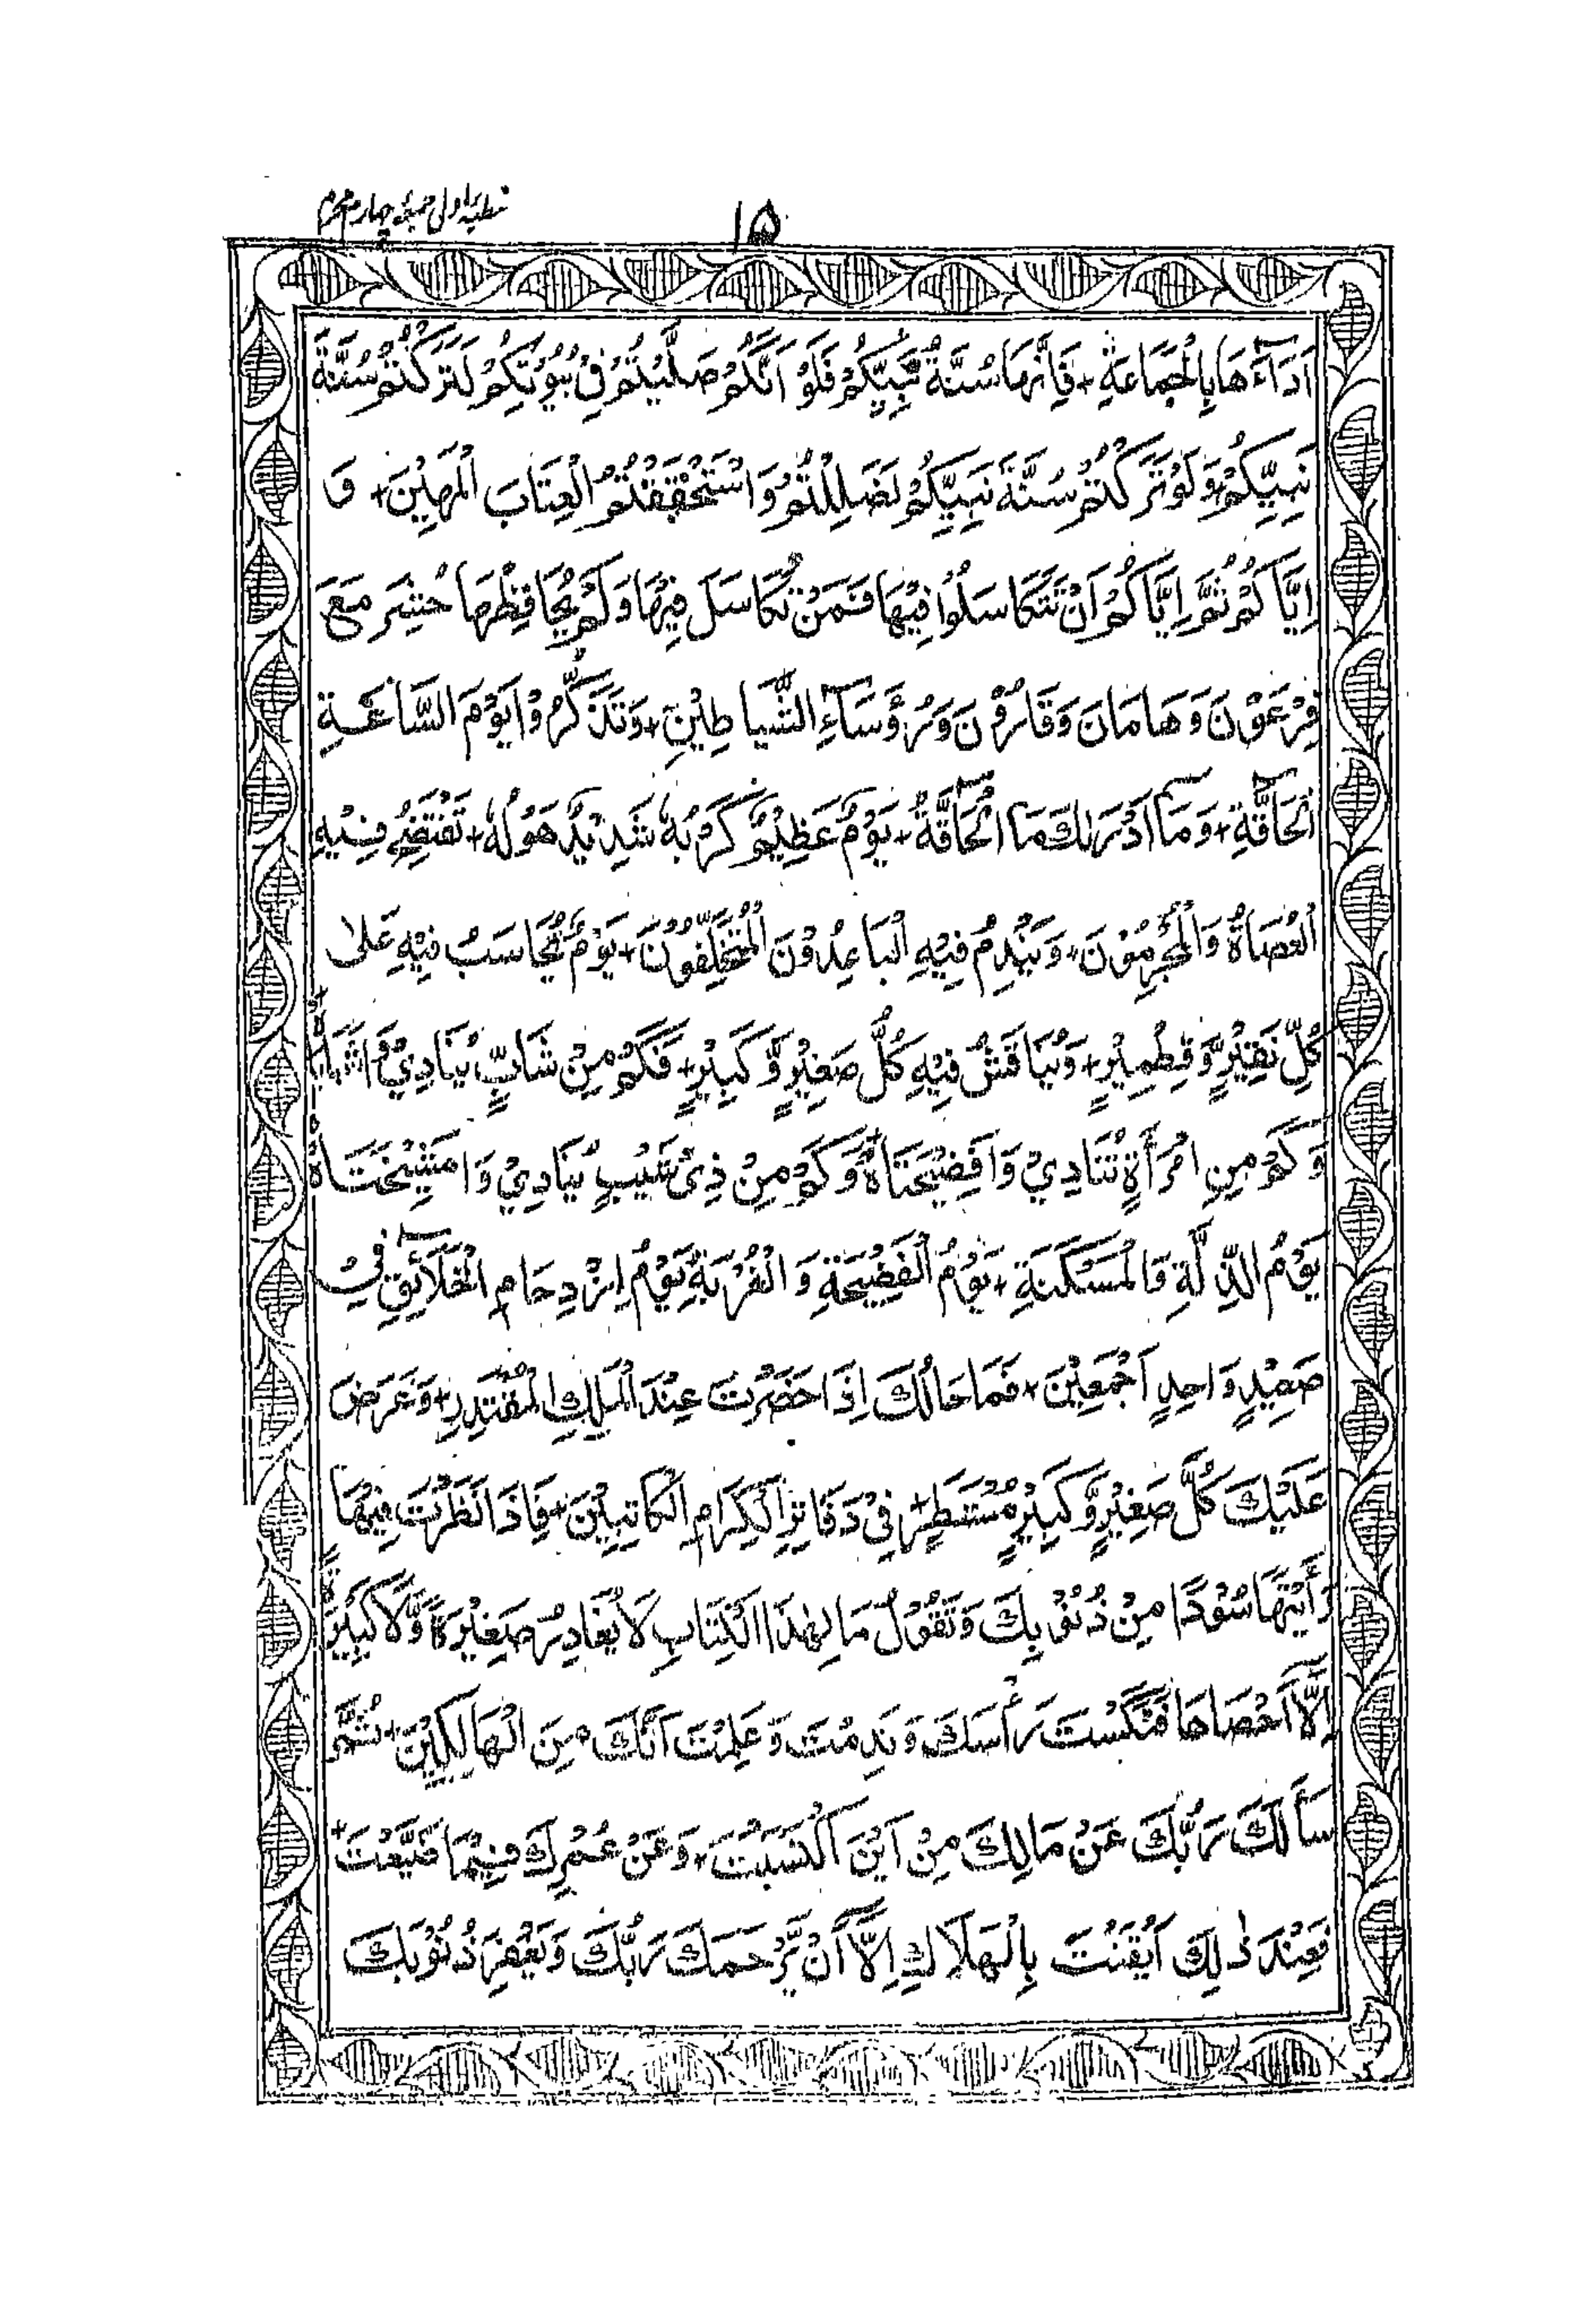 ۱۵
خطبہ اولی جمعہ چہارم محرم
اَدَآءَهَا بِالْجَمَاعَةِ + فَاِنَّهَا سُنَّةُ نَبِيِّكُمْ فَلَوْ اَنَّكُمْ صَلَّيْتُمْ فِيْ بُيُوْتِكُمْ لَتَرَكْتُمْ سُنَّةَ
نَبِيِّكُمْ وَلَوْ تَرَكْتُمْ سُنَّةَ نَبِيِّكُمْ لَضَلِلْتُمْ وَاسْتَحْقَقْتُمُ الْعِتَابَ الْمُهِيْنَ + وَ
اِيَّاكُمْ ثُمَّ اِيَّاكُمْ اَنْ تَتَكَاسَلُوْا فِيْهَا فَمَنْ تَكَاسَلَ فِيْهَا وَلَمْ يُحَافِظْهَا حُشِرَ مَعَ
فِرْعَوْنَ وَهَامَانَ وَقَارُوْنَ وَرُؤَسَآءِ الشَّيَاطِيْنِ + وَتَذَكَّرُوْا يَوْمَ السَّاعَةِ
الْحَاقَّةِ + وَمَآ اَدْرٰىكَ مَا الْحَآقَّةُ + يَوْمٌ عَظِيْمٌ كَرْبُهٗ شَدِيْدٌ هَوْلُهٗ + تَفْتَضِحُ فِيْهِ
الْعُصَاةُ وَالْمُجْرِمُوْنَ + وَيَنْدِمُ فِيْهِ الْبَاعِدُوْنَ الْمُتَخَلِّفُوْنَ + يَوْمٌ يُّحَاسَبُ فِيْهِ عَلٰى
كُلِّ نَقِيْرٍ وَّقِطْمِيْرٍ + وَيُنَاقَشُ فِيْهِ كُلُّ صَغِيْرٍ وَّكَبِيْرٍ + فَكَمْ مِنْ شَابٍّ يُنَادِيْ وَاشَبَابَاهُ
وَكَمْ مِنِ امْرَأَةٍ تُنَادِيْ وَافَضِيْحَتَاهُ + وَكَمْ مِنْ ذِيْ شَيْبٍ يُنَادِيْ وَامَشِيْخَتَاهُ
يَوْمُ الذِّلَّةِ وَالْمَسْكَنَةِ + يَوْمُ الْفَضِيْحَةِ وَالْغُرْبَةِ يَوْمُ اِزْدِحَامِ الْخَلَآئِقِ فِيْ
صَعِيْدٍ وَاحِدٍ اَجْمَعِيْنَ + فَمَا حَالُكَ اِذَا حَضَرْتَ عِنْدَ الْمَلِكِ الْمُقْتَدِرِ + وَعَرَضَ
عَلَيْكَ كُلَّ صَغِيْرٍ وَّكَبِيْرٍ مُسْتَطَرٍ + فِيْ دَفَاتِرِ الْكِرَامِ الْكَاتِبِيْنَ + فَاِذَا نَظَرْتَ فِيْهَا
رَأَيْتَهَا سُوْدًا مِنْ ذُنُوْبِكَ وَتَقُوْلُ مَالِ هٰذَا الْكِتَابِ لَا يُغَادِرُ صَغِيْرَةً وَّلَا كَبِيْرَةً
اِلَّا اَحْصَاهَا فَنَكَسْتَ رَأْسَكَ وَنَدِمْتَ وَعَلِمْتَ اَنَّكَ مِنَ الْهَالِكِيْنَ + ثُمَّ
سَأَلَكَ رَبُّكَ عَنْ مَالِكَ مِنْ اَيْنَ اكْتَسَبْتَ + وَعَنْ عُمُرِكَ فِيْمَا ضَيَّعْتَ +
فَعِنْدَ ذٰلِكَ اَيْقَنْتَ بِالْهَلَاكِ اِلَّا اَنْ يَّرْحَمَكَ رَبُّكَ وَيَغْفِرَ ذُنُوْبَكَ